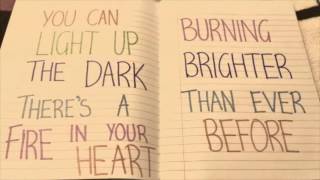 YOU CAN
LIGHT UP
THE DARK
THERE'S A
FIRE IN YOUR
HEART
BURNING
BRIGHTER
THAN EVER
BEFORE